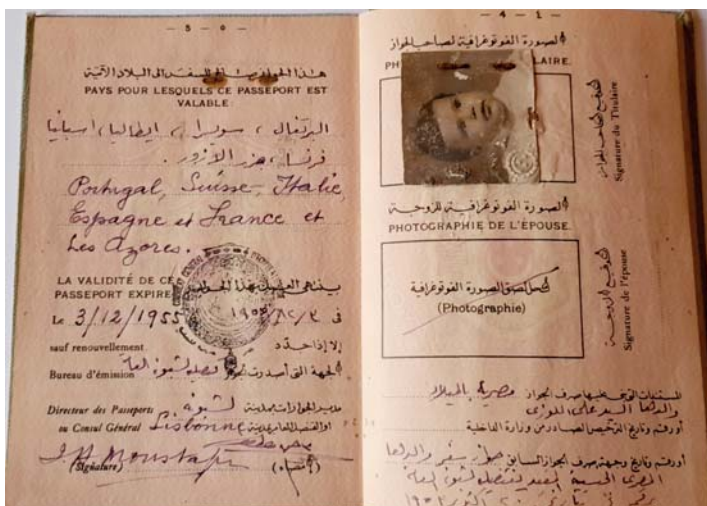 — 5 — ٥ —
هذا الجواز صالح للسفر الى البلاد الآتية
PAYS POUR LESQUELS CE PASSEPORT EST
VALABLE
البرتغال، سويسرا، ايطاليا، اسبانيا
فرنسا، جزر الآزور.
Portugal, Suisse, Italie,
Espagne et France et
Les Azores.
LA VALIDITÉ DE CE
PASSEPORT EXPIRE
ينتهى العمل بهذا الجواز
Le 3/12/1955
فى
sauf renouvellement
إلا إذا جدد
Bureau d'émission
الجهة التى أصدرت الجواز
Directeur des Passeports
ou Consul Général
Lisbonne
مدير الجوازات بمدينة لشبونة
او القنصل العام بمدينة
I.H. Moustafa
(Signature)
(امضاء)
— 4 — ٤ —
الصورة الفوتوغرافية لصاحب الجواز
LAIRE.
توقيع صاحب الجواز
Signature du Titulaire
الصورة الفوتوغرافية للزوجة
PHOTOGRAPHIE DE L'ÉPOUSE.
محل لصق الصورة الفوتوغرافية
(Photographie)
توقيع الزوجة
Signature de l'épouse
المستندات التى عليها صرف الجواز مصرية بالميلاد
أو رقم وتاريخ الترخيص الصادر من وزارة الداخلية
أو رقم وتاريخ وجهة صرف الجواز السابق جواز سفر والدها